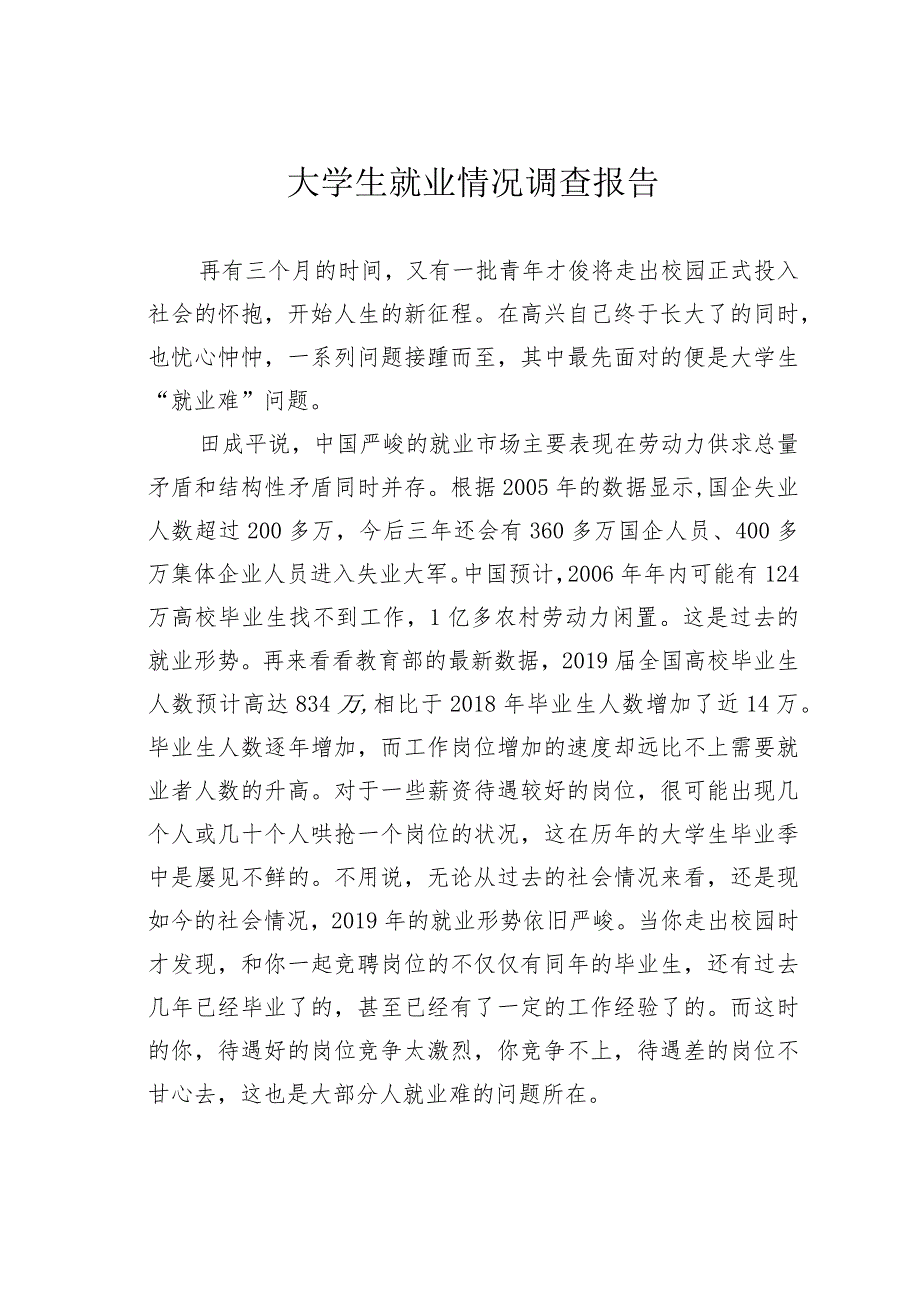 大学生就业情况调查报告
再有三个月的时间，又有一批青年才俊将走出校园正式投入
社会的怀抱，开始人生的新征程。在高兴自己终于长大了的同时，
也忧心忡忡，一系列问题接踵而至，其中最先面对的便是大学生
“就业难”问题。
田成平说，中国严峻的就业市场主要表现在劳动力供求总量
矛盾和结构性矛盾同时并存。根据 2005 年的数据显示,国企失业
人数超过 200 多万，今后三年还会有 360 多万国企人员、400 多
万集体企业人员进入失业大军。中国预计,2006 年年内可能有 124
万高校毕业生找不到工作，1 亿多农村劳动力闲置。这是过去的
就业形势。再来看看教育部的最新数据，2019 届全国高校毕业生
人数预计高达 834 万,相比于 2018 年毕业生人数增加了近 14 万。
毕业生人数逐年增加，而工作岗位增加的速度却远比不上需要就
业者人数的升高。对于一些薪资待遇较好的岗位，很可能出现几
个人或几十个人哄抢一个岗位的状况，这在历年的大学生毕业季
中是屡见不鲜的。不用说，无论从过去的社会情况来看，还是现
如今的社会情况，2019 年的就业形势依旧严峻。当你走出校园时
才发现，和你一起竞聘岗位的不仅仅有同年的毕业生，还有过去
几年已经毕业了的，甚至已经有了一定的工作经验了的。而这时
的你，待遇好的岗位竞争太激烈，你竞争不上，待遇差的岗位不
甘心去，这也是大部分人就业难的问题所在。